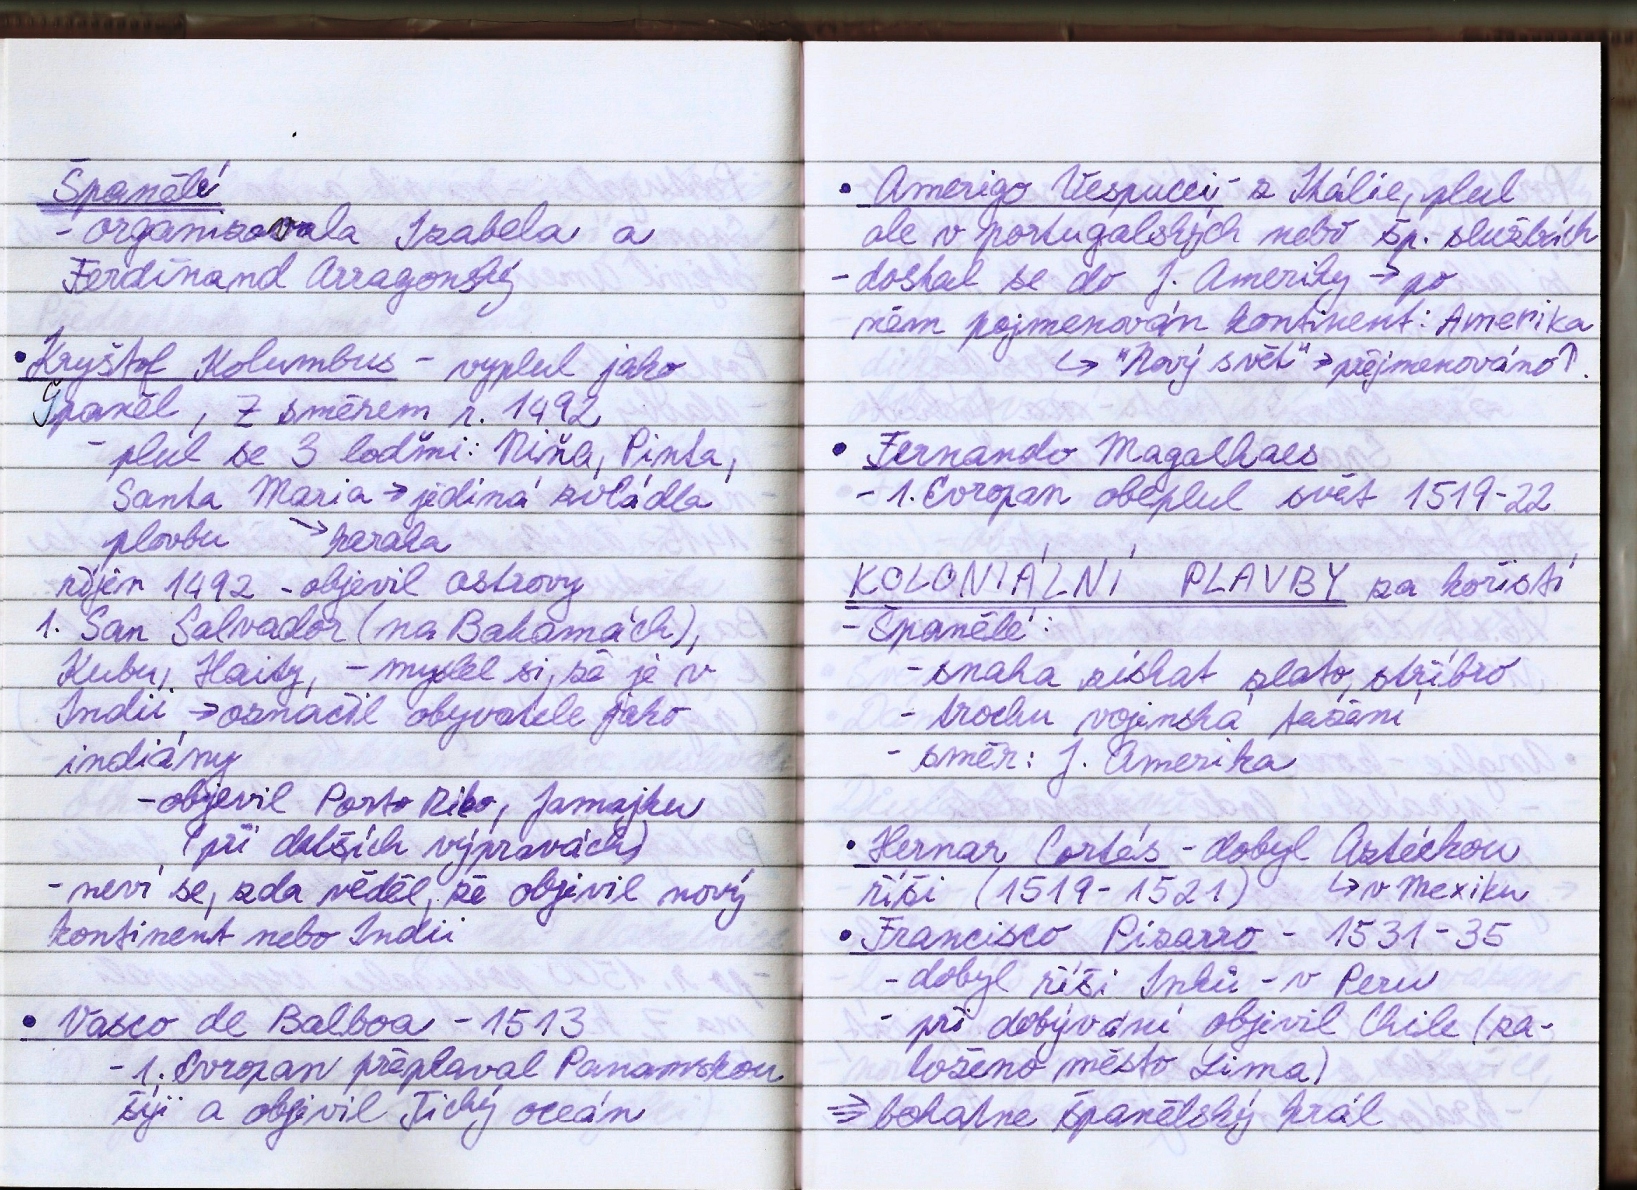 Španělé
- organizovala Izabela a
Ferdinand Arragonský
• Kryštof Kolumbus - vyplul jako
Španěl, Z směrem r. 1492
- plul se 3 loďmi: Niňa, Pinta,
Santa Maria → jediná zvládla
plovbu → karaka
říjen 1492 - objevil ostrovy
1. San Salvador (na Bahamách),
Kubu, Haity, - myslel si, že je v
Indii → označil obyvatele jako
indiány
- objevil Porto Riko, Jamajku
(při dalších výpravách)
- neví se, zda věděl, že objevil nový
kontinent nebo Indii
• Vasco de Balboa - 1513
- 1. Evropan přeplaval Panamskou
šíji a objevil Tichý oceán
• Amerigo Vespucci - z Itálie, plul
ale v portugalských nebo šp. službách
- dostal se do J. Ameriky → po
něm pojmenován kontinent: Amerika
↳ "Nový svět" → přejmenováno ↑.
• Fernando Magalhaes
- 1. Evropan obeplul svět 1519-22
KOLONIÁLNÍ PLAVBY za kořistí
- Španělé:
- snaha získat zlato, stříbro
- trochu vojenská tažení
- směr: J. Amerika
• Hernar Cortés - dobyl Aztéckou
říši (1519-1521) ↳ v Mexiku
• Francisco Pizarro - 1531-35
- dobyl říši Inků - v Peru
- při dobývání objevil Chile (za-
loženo město Lima)
⇒ bohatne španělský král